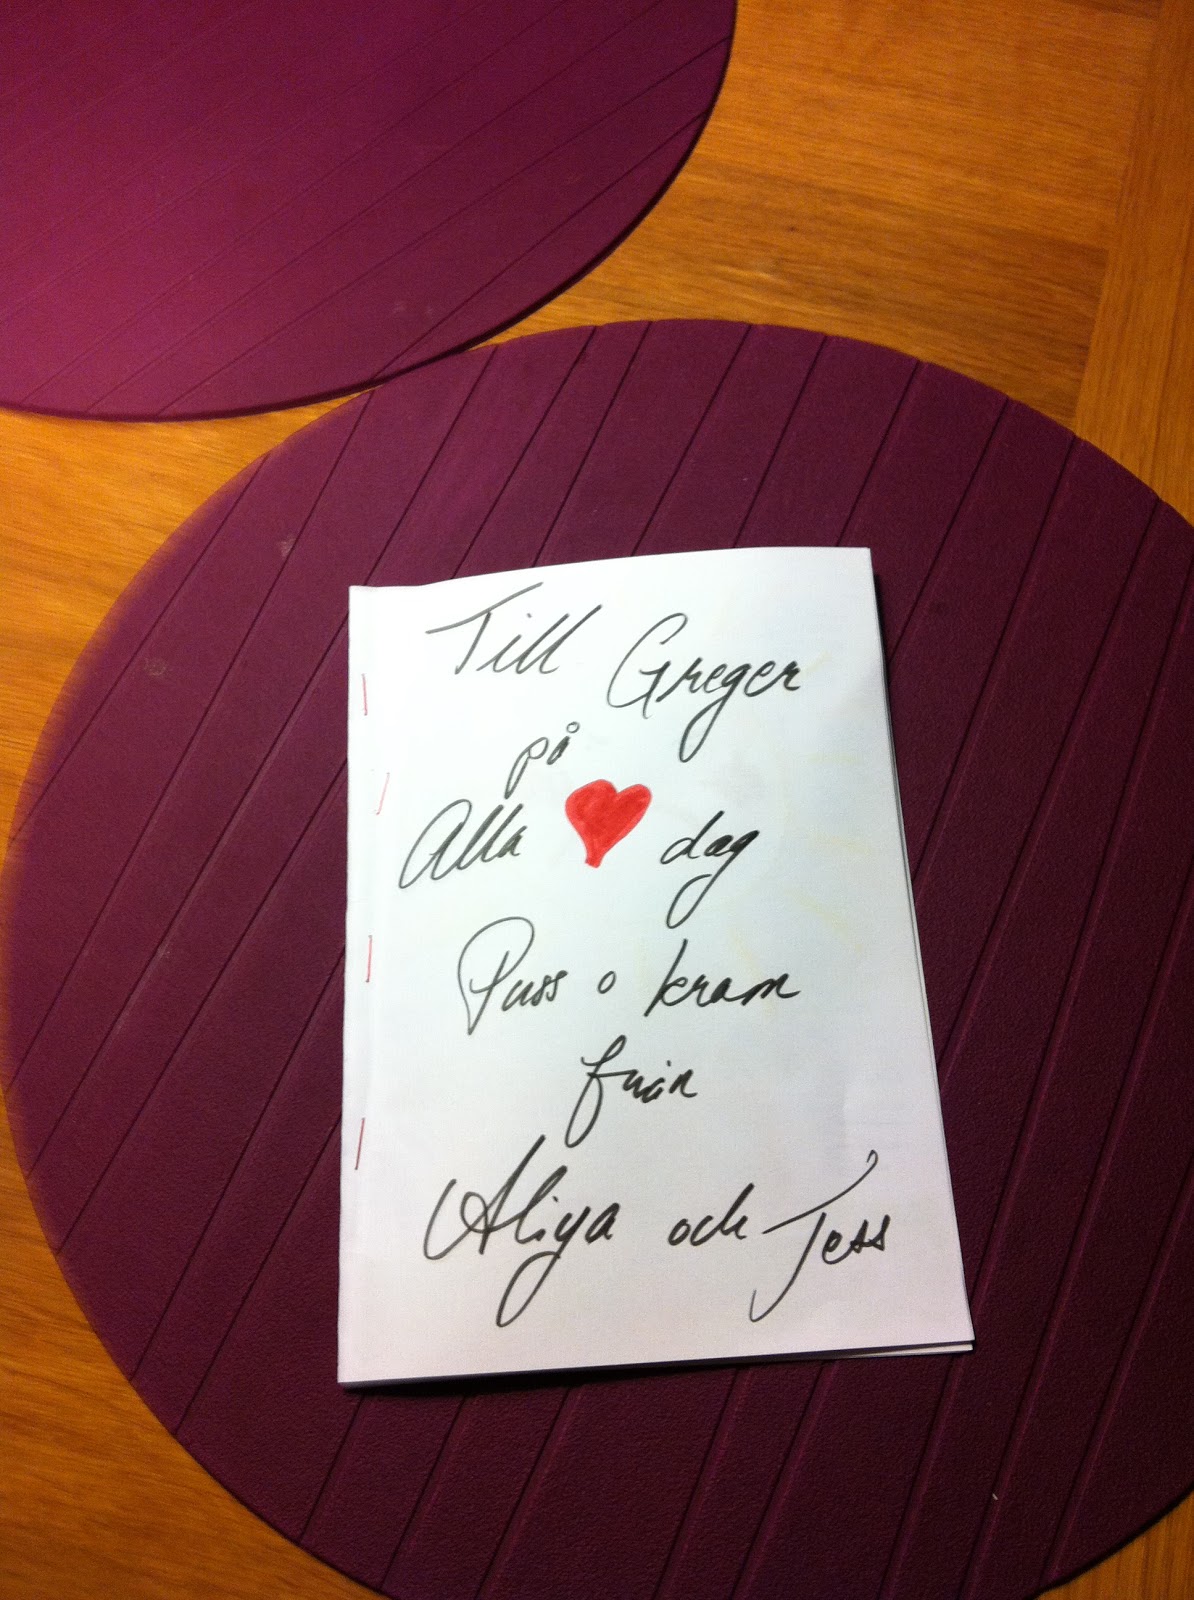 Till Greger
på
Alla ❤ dag
Puss o kram
från
Aliya och Jess